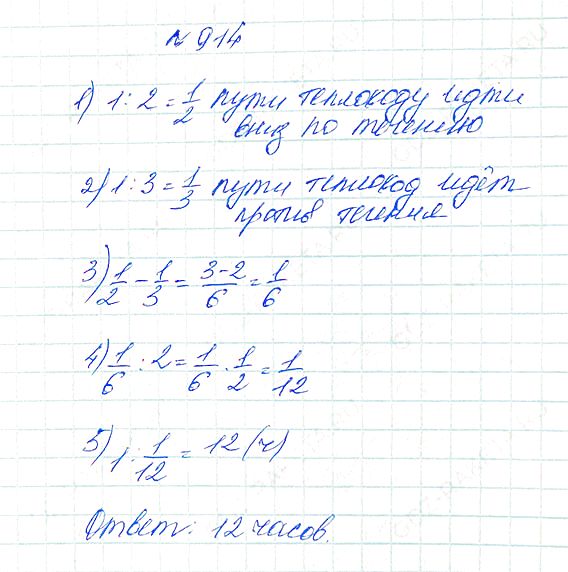 № 914
1) 1 : 2 = 1/2 пути теплоходу идти
вниз по течению
2) 1 : 3 = 1/3 пути теплоход идёт
против течения
3) 1/2 - 1/3 = 3-2/6 = 1/6
4) 1/6 : 2 = 1/6 · 1/2 = 1/12
5) 1 : 1/12 = 12 (ч)
Ответ: 12 часов.